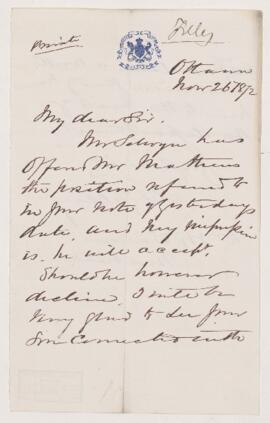 Tilley
Private
Ottawa
Nov 26 1872
My dear Sir.
Mr Selwyn has
offered Mr Mathews
the position referred to
in your note of yesterdays
date, and my impression
is he will accept.
Should he however
decline I will be
very glad to see your
Son connected with